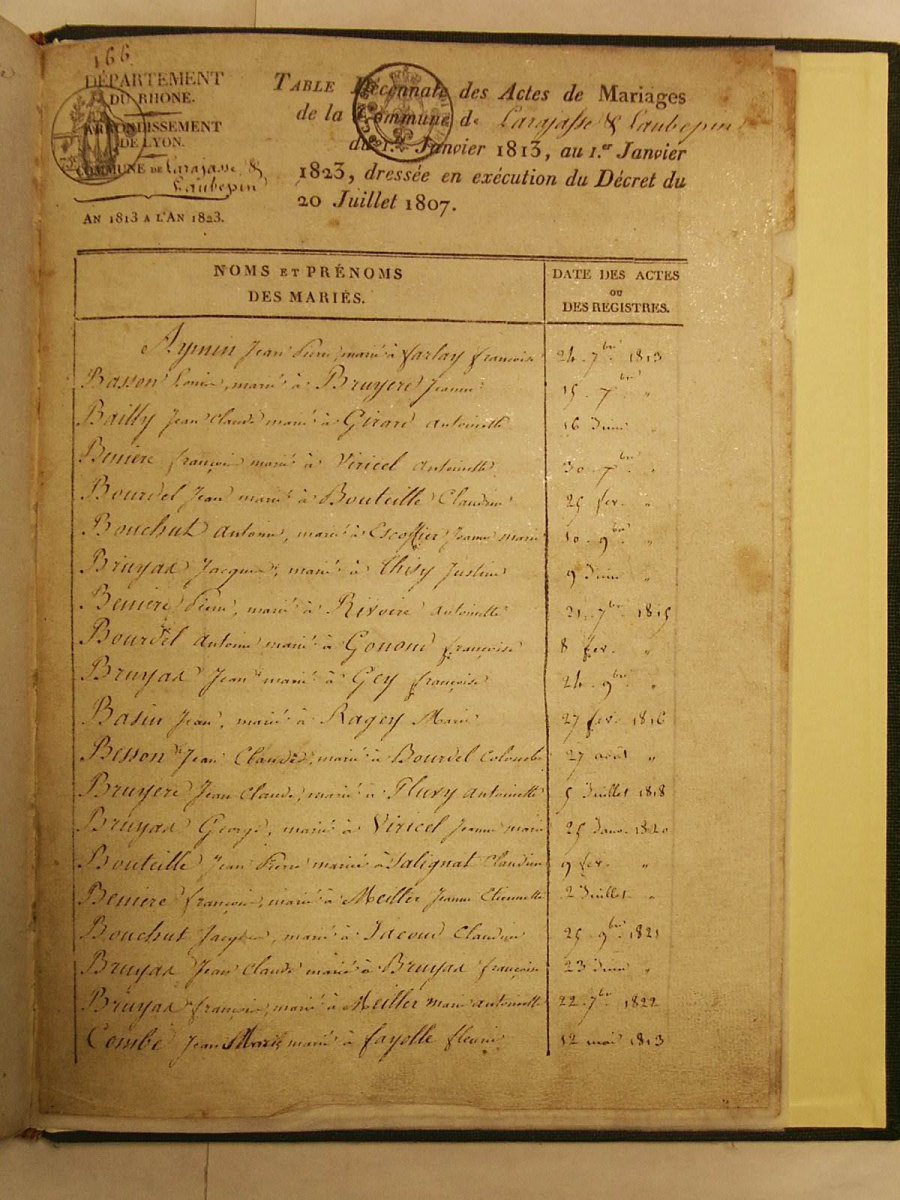 166
DÉPARTEMENT
DU RHONE.
ARRONDISSEMENT
DE LYON.
COMMUNE DE Larajasse &
Laubepin
AN 1813 A L'AN 1823.
TABLE Décennale des Actes de Mariages
de la Commune de Larajasse & Laubepin
du 1.er Janvier 1813, au 1.er Janvier
1823, dressée en exécution du Décret du
20 Juillet 1807.
NOMS ET PRÉNOMS
DES MARIÉS.
DATE DES ACTES
OU
DES REGISTRES.
Aymin Jean Pierre, marié à farlay françoise 24 7bre 1813
Basson Louis, marié à Bruyere Jeanne 15 7bre "
Bailly Jean Claude marié à Girard antoinette 16 Juin "
Beniere françois marié à Viricel antoinette 30 7bre "
Bourdel Jean marié à Bouteille Claudine 25 fev. "
Bouchut antoine, marié à Escoffier Jeanne marie 10 9bre "
Bruyas Jacques, marié à Chisy Justine 9 Juin "
Beniere Pierre, marié à Rivoire antoinette 21 7bre 1815
Bourdel antoine marié à Gonond françoise 8 fev. "
Bruyas Jean marié à Gey françoise 24 9bre "
Basin Jean, marié à Ragey Marie 27 fev. 1816
Besson Jean Claude, marié à Bourdel Colombe 27 août "
Bruyere Jean Claude, marié à Fluvy antoinette 5 Juillet 1818
Bruyas George, marié à Viricel Jeanne marie 25 Janv. 1820
Bouteille Jean Pierre marié à Salignat Claudine 9 fev. "
Beniere françois, marié à Meiller Jeanne Etiennette 2 Juillet "
Bouchut Jacques, marié à Jacoud Claudine 25 9bre 1821
Bruyas Jean Claude marié à Bruyas françoise 23 Juin "
Bruyas françois, marié à Meiller marie antoinette 22 7bre 1822
Combe Jean Marie marié à fayolle fleurie 12 mai 1813